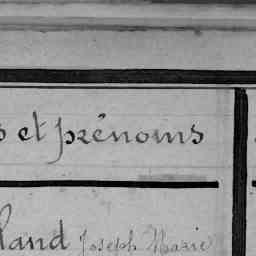 s et prénoms
land Joseph Marie